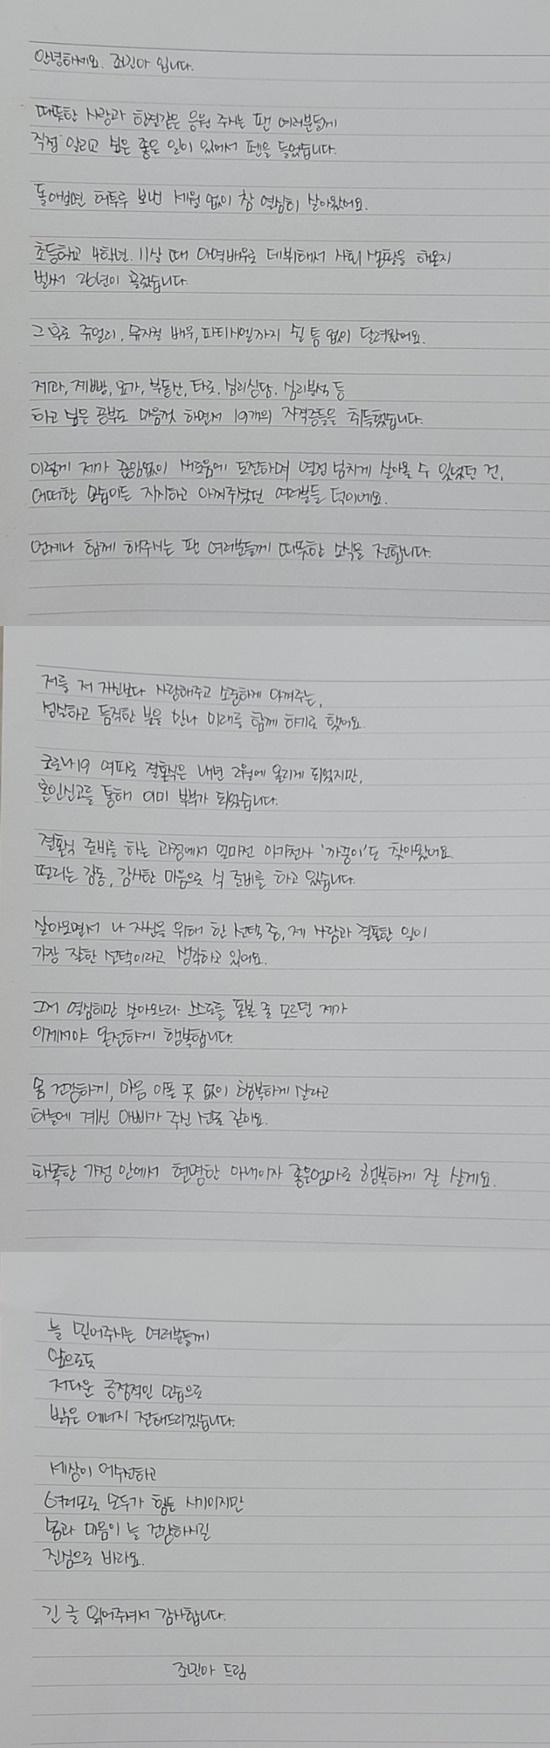 안녕하세요. 조민아 입니다.
따뜻한 사랑과 한결같은 응원 주시는 팬 여러분들께
직접 알리고 싶은 좋은 일이 있어서 펜을 들었습니다.
돌아보면 허투루 보낸 세월 없이 참 열심히 살아왔어요.
초등학교 4학년. 11살 때 아역배우로 데뷔해서 사회 생활을 해온지
벌써 26년이 흘렀습니다.
그 후로 쥬얼리, 뮤지컬 배우, 파티시엘까지 쉴 틈 없이 달려왔어요.
제과, 제빵, 요가, 부동산, 타로, 심리상담, 심리분석 등
하고 싶은 공부도 마음껏 하면서 19개의 자격증들을 취득했습니다.
이렇게 제가 끊임없이 새로움에 도전하며 열정 넘치게 살아올 수 있었던 건,
어떠한 모습이든 지지하고 아껴주셨던 여러분들 덕이네요.
언제나 함께 해주시는 팬 여러분들께 따뜻한 소식을 전합니다.
저를 저 자신보다 사랑해주고 소중하게 아껴주는,
성실하고 듬직한 분을 만나 미래를 함께 하기로 했어요.
코로나19 여파로 결혼식은 내년 2월에 올리게 되었지만,
혼인신고를 통해 이미 부부가 되었습니다.
결혼식 준비를 하는 과정에서 얼마전 아가천사 '까꿍이'도 찾아왔어요.
떨리는 감동, 감사한 마음으로 식 준비를 하고 있습니다.
살아오면서 나 자신을 위해 한 선택 중, 제 사랑과 결혼한 일이
가장 잘한 선택이라고 생각하고 있어요.
그저 열심히만 살아오느라 스스로를 돌볼 줄 모르던 제가
이제서야 온전하게 행복합니다.
몸 건강하게, 마음 아플 곳 없이 행복하게 살라고
하늘에 계신 아빠가 주신 선물 같아요.
화목한 가정 안에서 현명한 아내이자 좋은엄마로 행복하게 잘 살게요.
늘 믿어주시는 여러분들께
앞으로도
저다운 긍정적인 모습으로
밝은 에너지 전해드리겠습니다.
세상이 어수선하고
여러모로 모두가 힘든 시기이지만
몸과 마음이 늘 건강하시길
진심으로 바라요.
긴 글 읽어주셔서 감사합니다.
조민아 드림